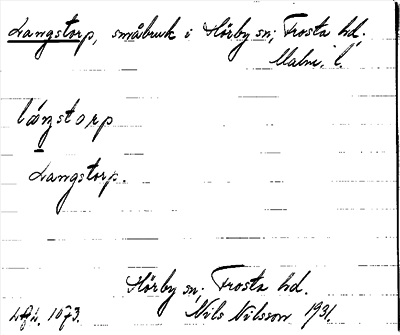 Langstorp, småbruk i Hörby sn; Frosta hd.
Malm. l.
långstorp
Langstorp.
Hörby sn; Frosta hd.
1073. Nils Nilsson 1931.